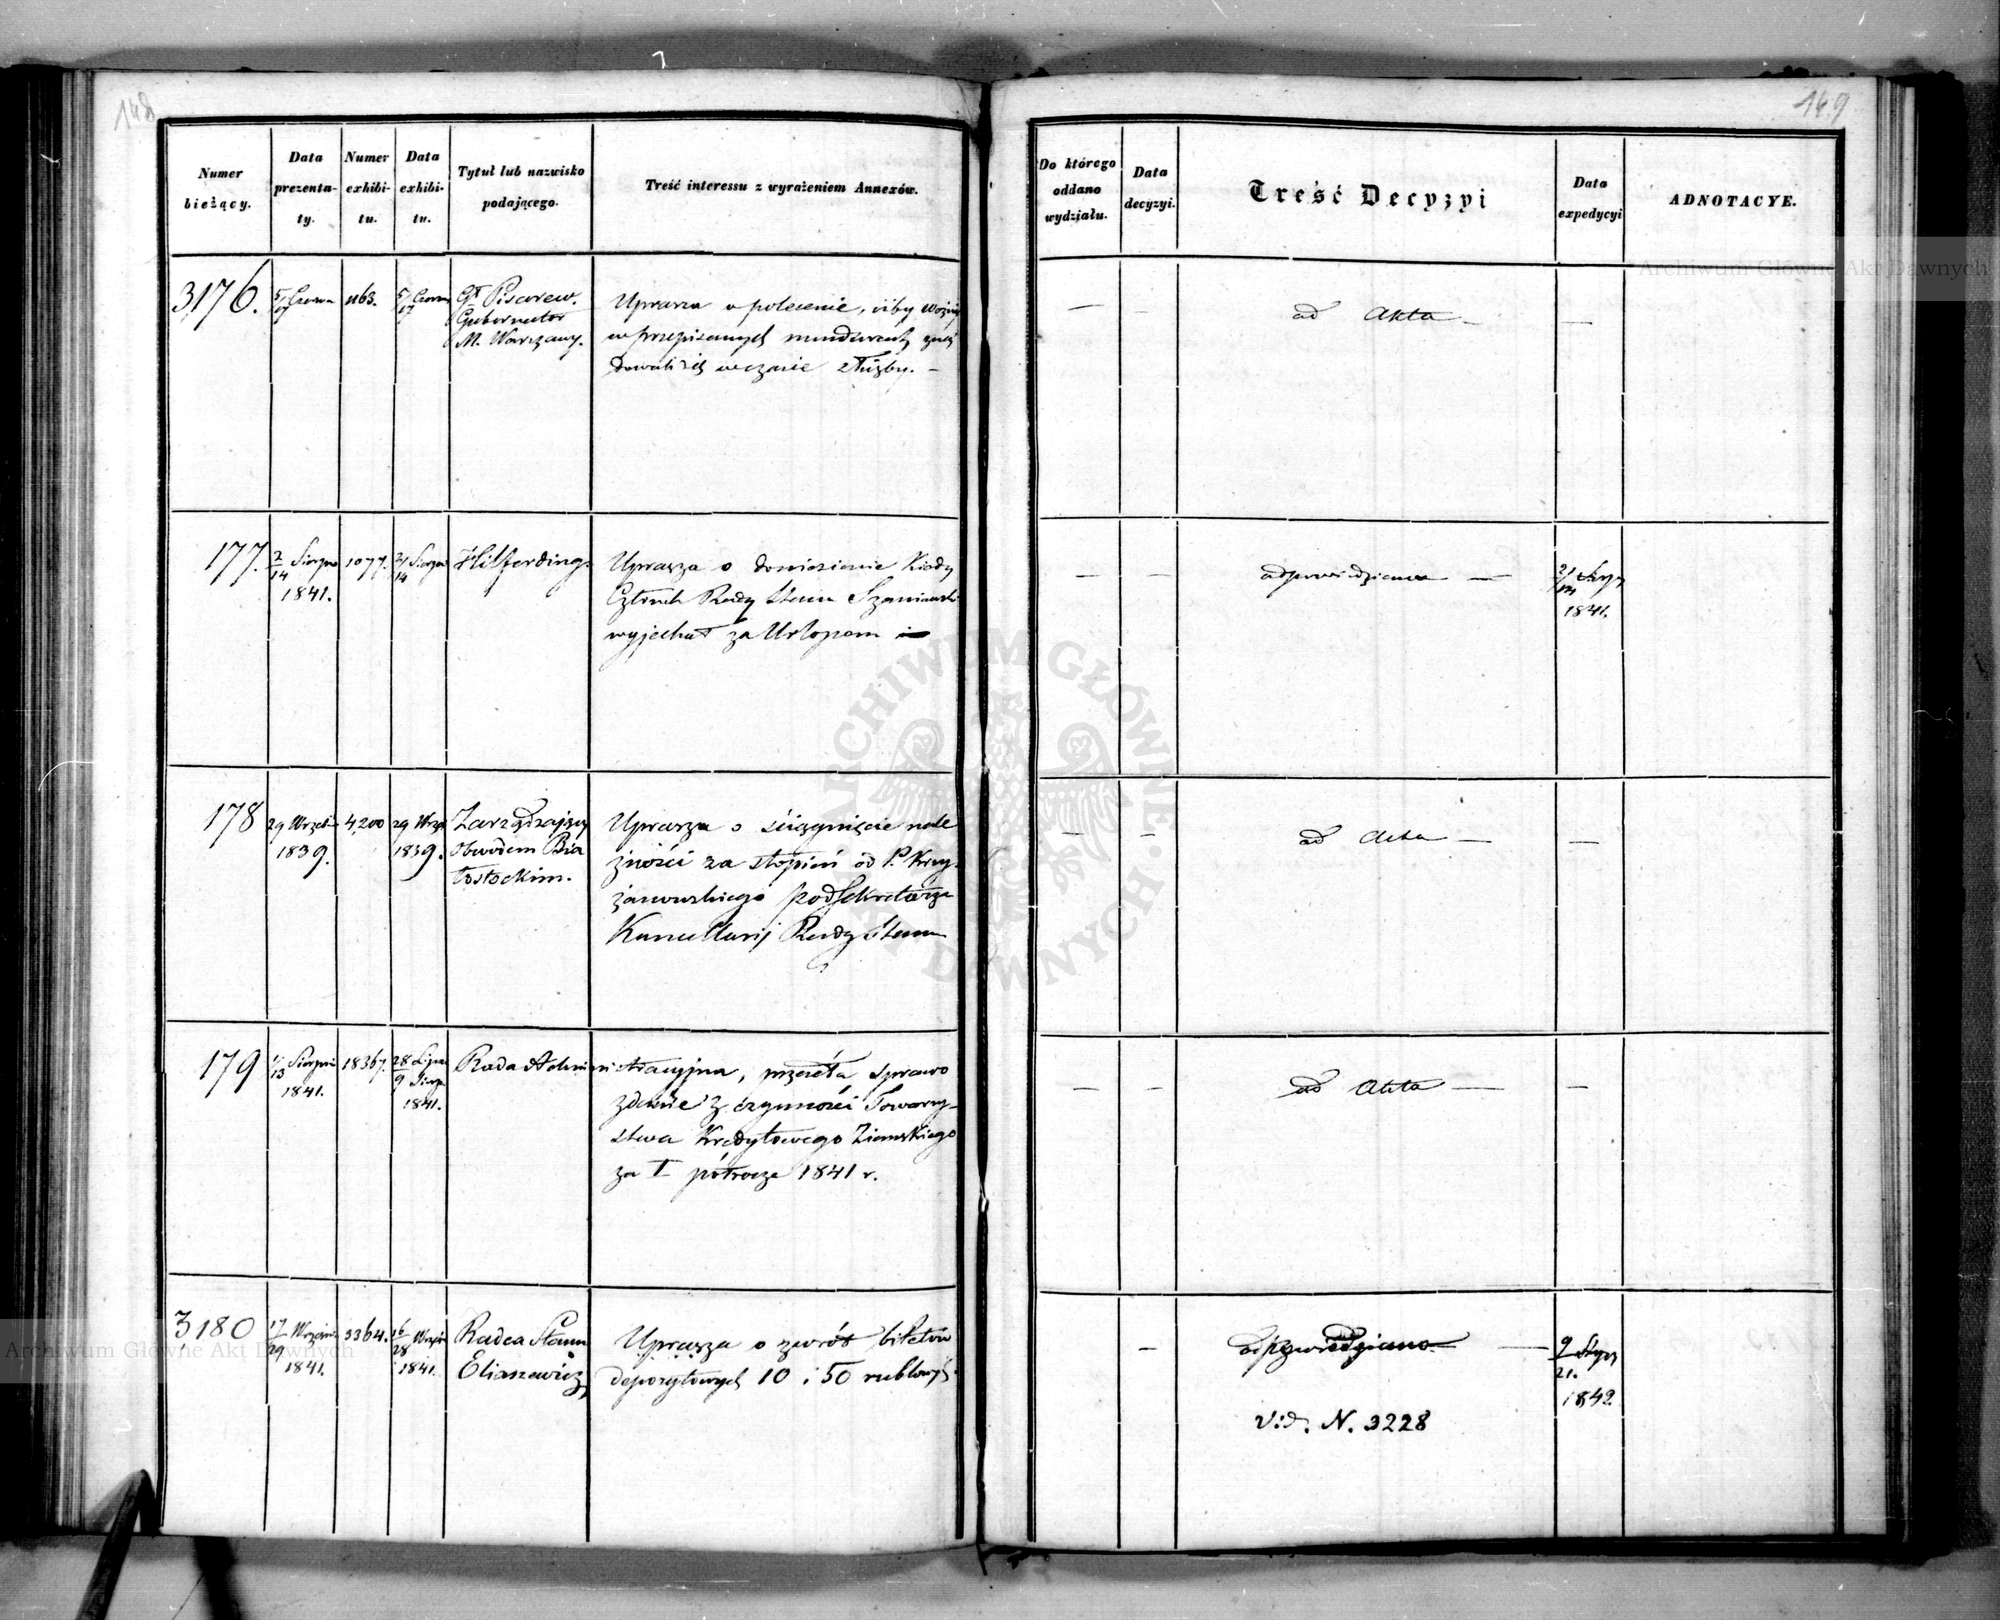 148
Numer bieżący.
Data prezentaty.
Numer exhibitu.
Data exhibitu.
Tytuł lub nazwisko podającego.
Treść interessu z wyrażeniem Annexów.
3,176.
5/17 Czerwa
1163.
5/17 Czerwa
Gł Pisarew.
Gubernator
M. Warszawy.
Uprasza o polecenie, iżby Woźni
w przepisanych mundurach znaj
dowali się w czasie służby. –
177.
2/14 Sierpnia
1841.
1077.
2/14 Sierpn
Hilferding
Uprasza o doniesienie Kiedy
Członek Rady Stanu Szaniawski
wyjechał za Urlopem
178
29 Wrześ
1839.
4,200
29 Wrze
1839.
Zarządzający
Obwodem Bia
łostockim.
Uprasza o ściągnięcie nale
żności za stopień od P. Krzy
żanowskiego podsekretarza
Kancellarij Rady Stanu
179
1/13 Sierpnia
1841.
18367.
28 Lipca
9 Sierp
1841.
Rada Administracyjna, przesyła sprawo
zdanie z czynności Towarzy-
stwa Kredytowego Ziemskiego
za I półrocze 1841 r.
3,180
17/29 Wrześni
1841.
3364.
16/28 Wrześ
1841.
Radca Stanu
Eliaszewicz
Uprasza o zwrót biletów
depozytowych 10 i 50 rublowych
149
Do którego oddano wydziału.
Data decyzyi.
Treść Decyzyi
Data expedycyi
ADNOTACYE.
— — ad Akta — —
— — odpowiedziano —
1841.
— — ad Akta — —
— — ad Akta — —
— odpowiedziano —
9/21. Stycz
1842
vid. N. 3228
Archiwum Główne Akt Dawnych
ARCHIWUM GŁÓWNE AKT DAWNYCH
Archiwum Główne Akt Dawnych